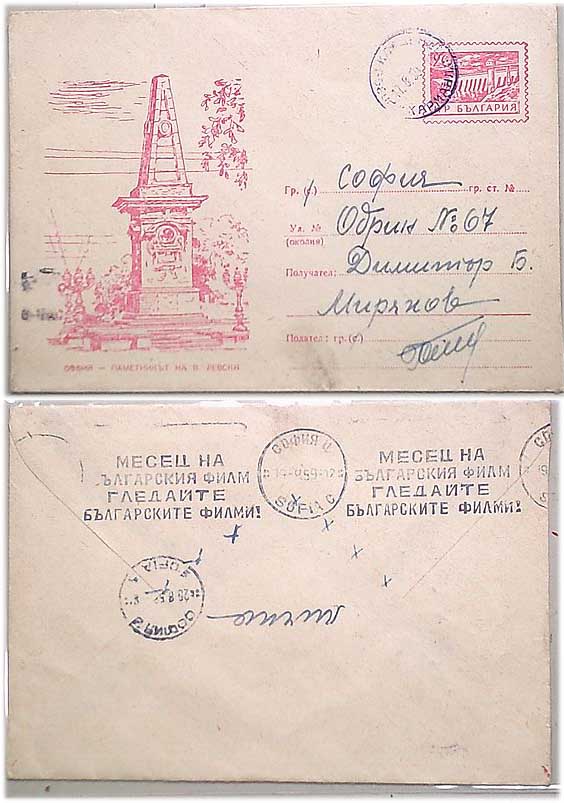 НР БЪЛГАРИЯ
Гр. (с.) София гр. ст. №
Ул. № Обрин № 67
(околия)
Получател: Димитър Б.
Мирянов
Подател: гр. (с.)
СОФИЯ — ПАМЕТНИКЪТ НА В. ЛЕВСКИ
МЕСЕЦ НА
БЪЛГАРСКИЯ ФИЛМ
ГЛЕДАЙТЕ
БЪЛГАРСКИТЕ ФИЛМИ!
СОФИЯ Ц
SOFIA C
МЕСЕЦ НА
БЪЛГАРСКИЯ ФИЛМ
ГЛЕДАЙТЕ
БЪЛГАРСКИТЕ ФИЛМИ!
SOFIA
СОФИЯ
лично